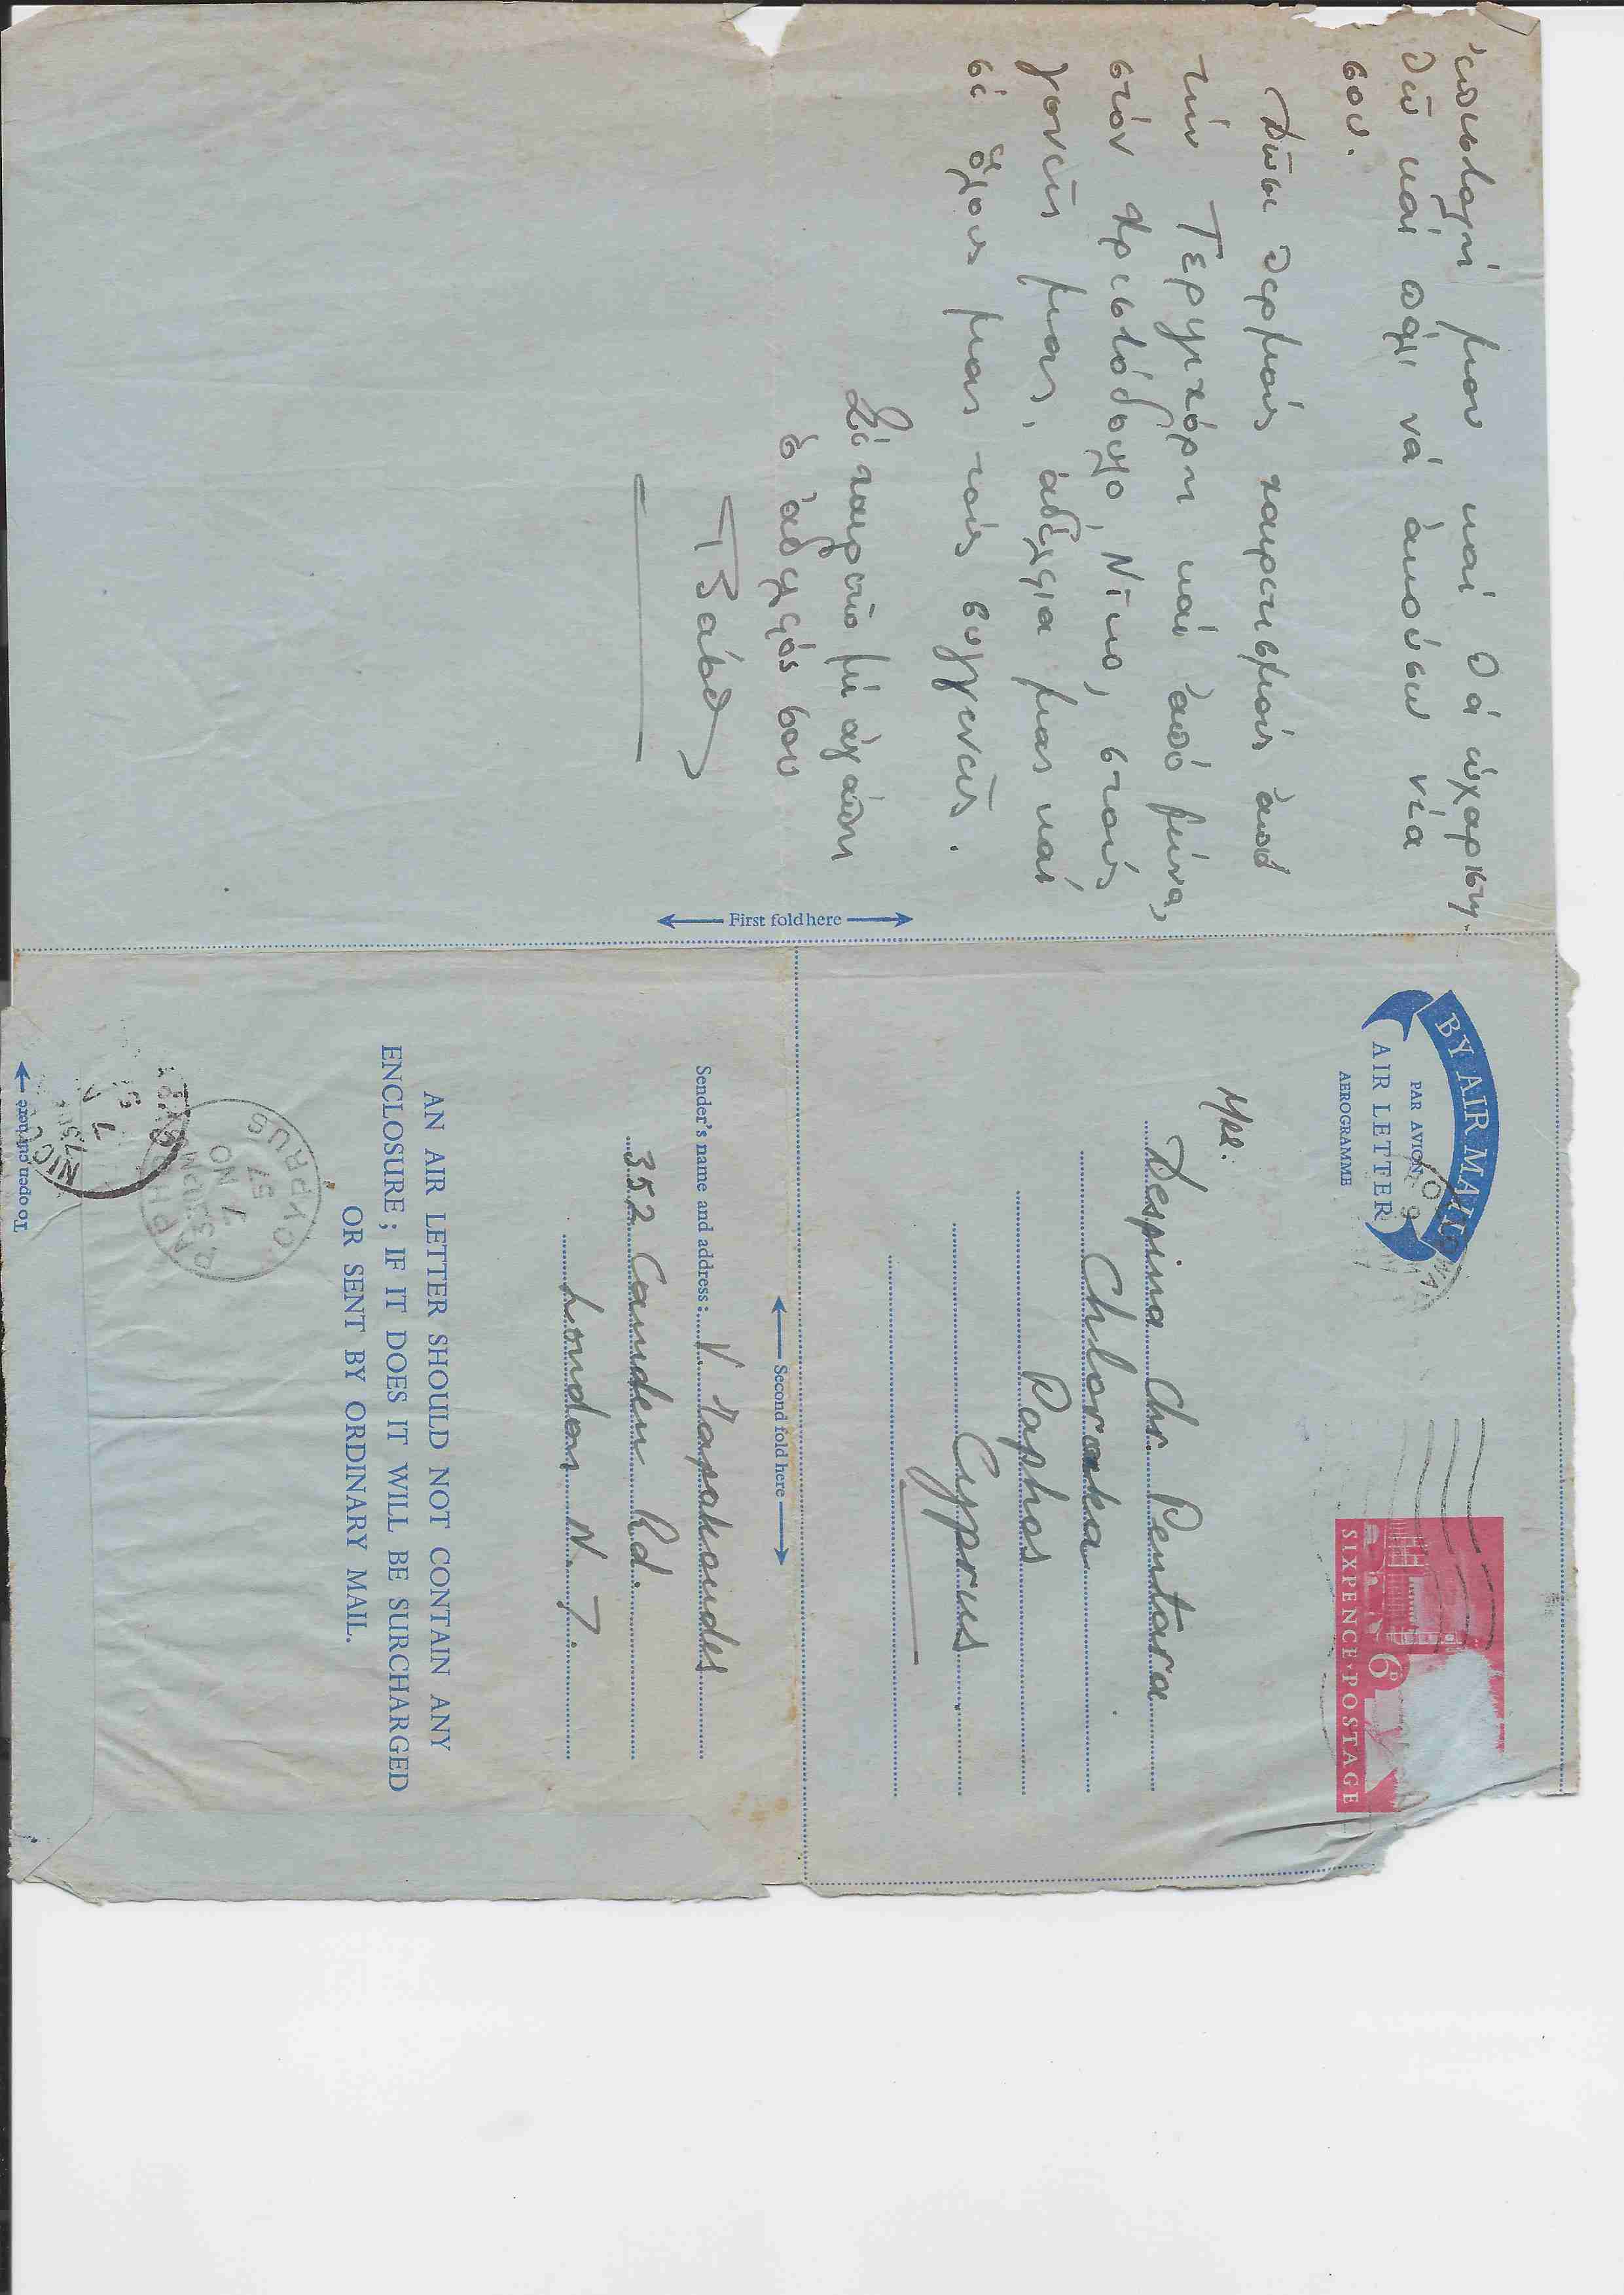 ἐπιστολή μου καὶ θά εὐχαριστη-
θῶ καί πάλι νά ἀκούσω νέα
σου.
Δῶσε θερμούς χαιρετισμούς ἀπό
τήν Τερψιχόρη καί ἀπό μένα,
στόν Χριστόδουλο, Νίκο, στούς
γονεῖς μας, ἀδέλφια μας καί
σέ ὅλους μας τούς συγγενεῖς.
Σέ χαιρετῶ μέ ἀγάπη
ὁ ἀδελφός σου
First fold here
BY AIR MAIL
PAR AVION
AIR LETTER
AEROGRAMME
SIXPENCE·POSTAGE
6D
Mrs.
Despina Chr. Pentara
Chloraka
Paphos
Cyprus
Second fold here
Sender's name and address: V.
352 Camden Rd.
London N. 7.
AN AIR LETTER SHOULD NOT CONTAIN ANY
ENCLOSURE; IF IT DOES IT WILL BE SURCHARGED
OR SENT BY ORDINARY MAIL.
PAPHOS
7 NO
57
CYPRUS
To open cut here